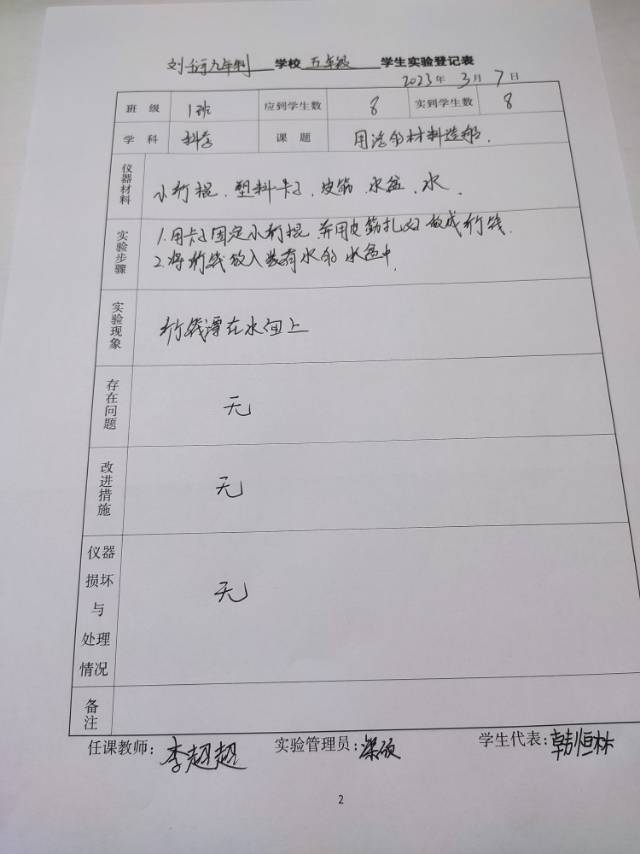 刘 九年制 学校 五年级 学生实验登记表
2023年 3月 7日
班 级 1班 应到学生数 8 实到学生数 8
学 科 科学 课 题 用浮的材料造船.
仪器材料 小竹棍、塑料卡子、皮筋、水盆、水.
实验步骤 1.用卡子固定小竹棍 并用皮筋扎好 做成竹筏.
2.将竹筏放入装有水的水盆中.
实验现象 竹筏漂在水面上
存在问题 无
改进措施 无
仪器损坏与处理情况 无
备注
任课教师: 李超超 实验管理员: 学生代表: 韩恒林
2